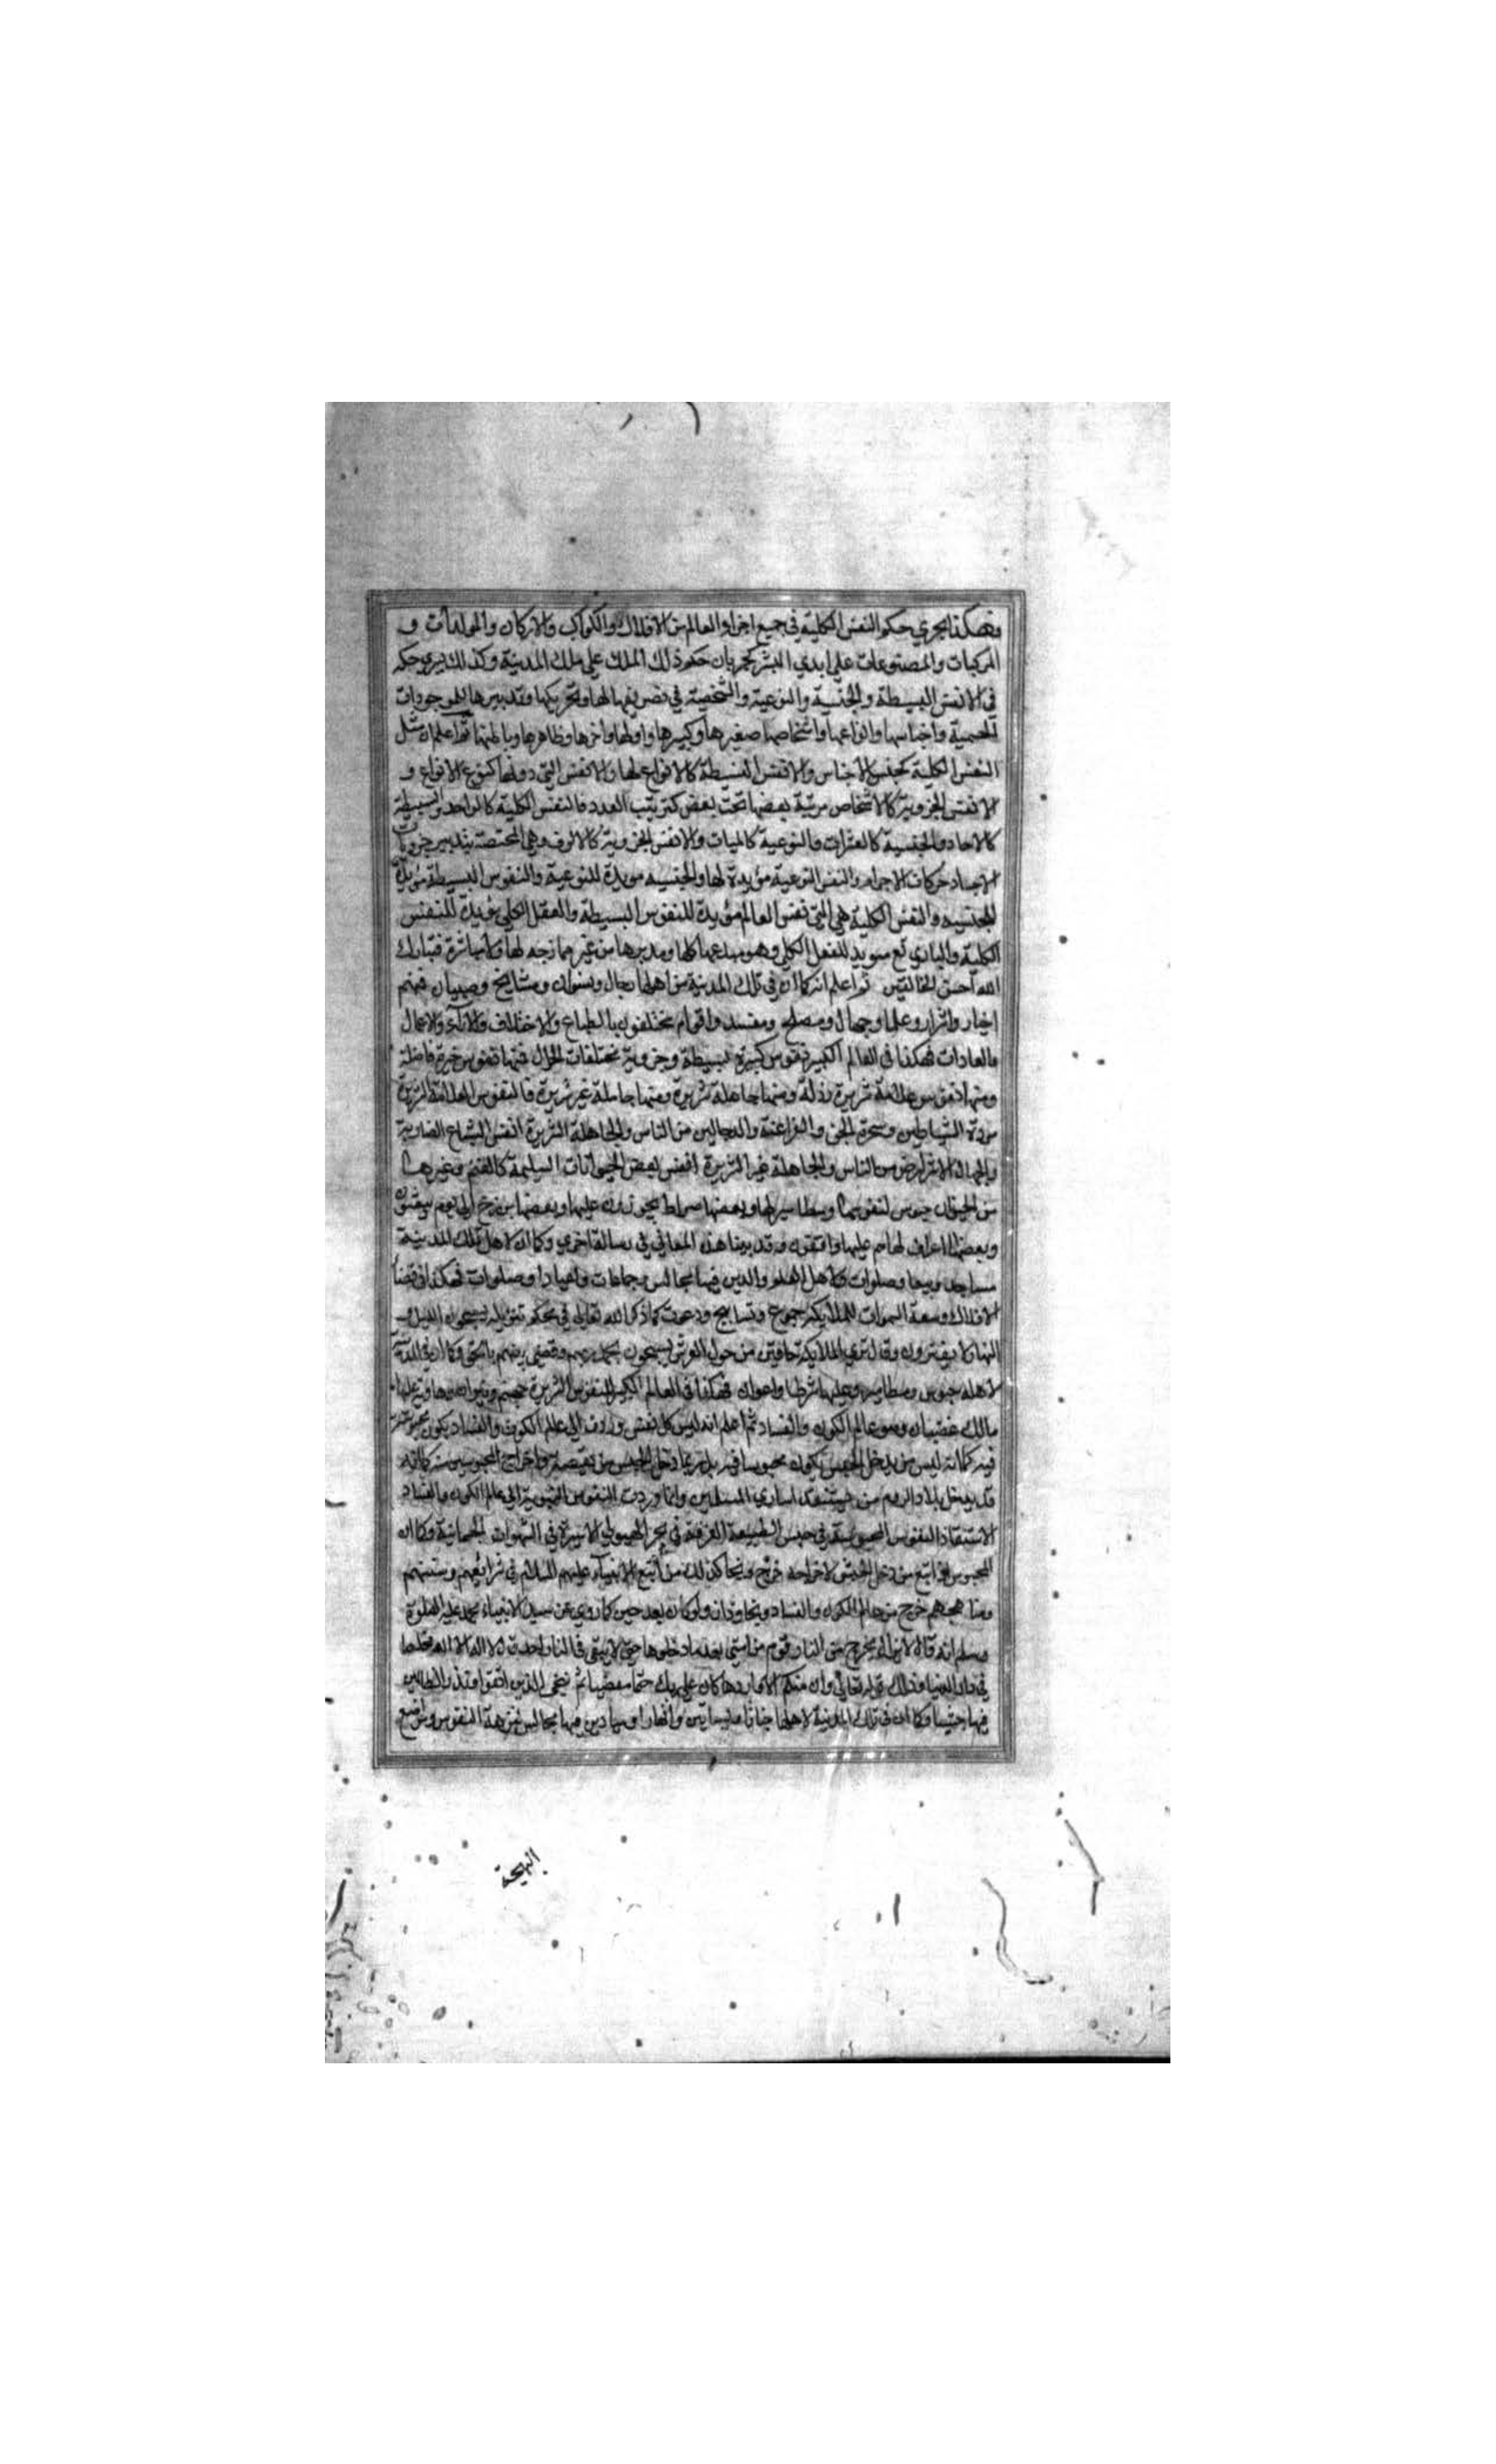 وهكذا يجري حكم النفس الكلية في جميع اجزاء العالم من الافلاك والكواكب والاركان والمولدات و
المركبات والمصنوعات على ايدي البشر كجريان حكم ذلك الملك على تلك المدينة وكذلك يسري حكمه
في الانفس البسيطة والجنسية والنوعية والشخصية في تصريفها لها وتحريكها وتدبيرها للموجودات
الجسمية واجناسها وانواعها واشخاصها صغيرها وكبيرها واولها واخرها وظاهرها وباطنها ثم اعلم ان مثل
النفس الكلية كجنس الاجناس والانفس البسيطة كالانواع لها والانفس التي دونها كنوع الانواع و
الانفس الجزوية كالاشخاص مرتبة بعضها تحت بعض كترتيب العدد فالنفس الكلية كالواحد والبسيطة
كالاحاد والجنسية كالعشرات والنوعية كالميات والانفس الجزوية كالالوف وهي المختصة بتدبير جزويات
الاجساد حركات الاجرام والنفس النوعية مؤيدة لها والجنسيه مويدة للنوعية والنفوس البسيطة مؤيدة
للجنسيه والنفس الكلية هي التي نفس العالم مؤيدة للنفوس البسيطة والعقل الكلي مؤيدة للنفس
الكلية والباري تع مويد للعقل الكلي وهو مبدعها كلها ومدبرها من غير ممازجه لها ولا مباشرة فتبارك
الله احسن الخالقين ثم اعلم انه كما ان في تلك المدينة من اهلها رجال ونسوان ومشايخ وصبيان فمنهم
اخيار واشرار وعلما وجهال ومصلح ومفسد واقوام مختلفون بالطباع والاخلاق والآراء والاعمال
والعادات فهكذا في العالم الكبير نفوس كثيرة بسيطة وجزوية مختلفات الحال فمنها نفوس خيرة فاضلة
ومنها نفوس علامة شريرة رذلة ومنها جاهلة شريرة ومنها جاهلة غير شريرة فالنفوس العلامة الشريرة
مردة الشياطين وسحرة الجن والفراعنة والدجالين من الناس والجاهلة الشريرة انفس السباع الضارية
والجهال الاشرار من الناس والجاهلة غير الشريرة انفس بعض الحيوانات السليمة كالغنم وغيرها
من الحيوان حبوس لنفوسها ومطامير لها وبعضها صراط يجوزون عليها وبعضها برزخ الى يوم يبعثون
وبعضها اعراف لها هم عليها واقفون وقد بينا هذه المعاني في رسالة اخرى وكما ان لاهل تلك المدينة
مساجد وبيعا وصلوات ولاهل العلم والدين فيها مجالس وجماعات واعيادا وصلوات فهكذا في فضاء
الافلاك وسعة السموات للملايكه جموع وتسابيح ودعوت كما ذكر الله تعالى في محكم تنزيله يسبحون الليل و
النهار لا يفترون وقال ترى الملايكة حافين من حول العرش يسبحون بحمد ربهم وقضي بينهم بالحق وكما ان في المدينة
لاهله حبوس ومطامير وعليها شرطا واعوان فهكذا في العالم الكبير للنفوس الشريرة جهنم ونيران وهاوية عليها
مالك غضبان وهو عالم الكون والفساد ثم اعلم انه ليس كل نفس وردت الى عالم الكون والفساد يكون محبوسة
فيه كما انه ليس من يدخل الحبس يكون محبوسا فيه بل ربما دخل الحبس من يقصد اخراج المحبوسين منه كما انه
قد يدخل بلاد الروم من يستنقذ اسارى المسلمين وانما وردت النفوس النبوية الى عالم الكون والفساد
لاستنقاذ النفوس المحبوسة في حبس الطبيعة الغرقة في بحر الهيولى الاسيرة في الشهوات الجسمانية وكما ان
المحبوس اذا اتبع من دخل الحبس لاخراجه خرج ونجا كذلك من اتبع الانبياء عليهم السلام في شرائعهم وسننهم
ومناهجهم خرج من عالم الكون والفساد ونجا وفاز ولو كان بعد حين كما روي عن سيد الانبياء محمد عليه الصلوة
وسلم انه قال لا يزال يخرج من النار قوم من امتي بعد ما دخلوها حتى لا يبقى في النار احد قال لا اله الا الله مخلصا
في دار الدنيا وذلك قوله تعالى وان منكم الا واردها كان على ربك حتما مقضيا ثم ننجي الذين اتقوا ونذر الظالمين
فيها جثيا وكما ان في تلك المدينة لاهلها جنانا وبساتين وانهارا وميادين فيها مجالس لنزهة النفوس ومواضع
البهجة